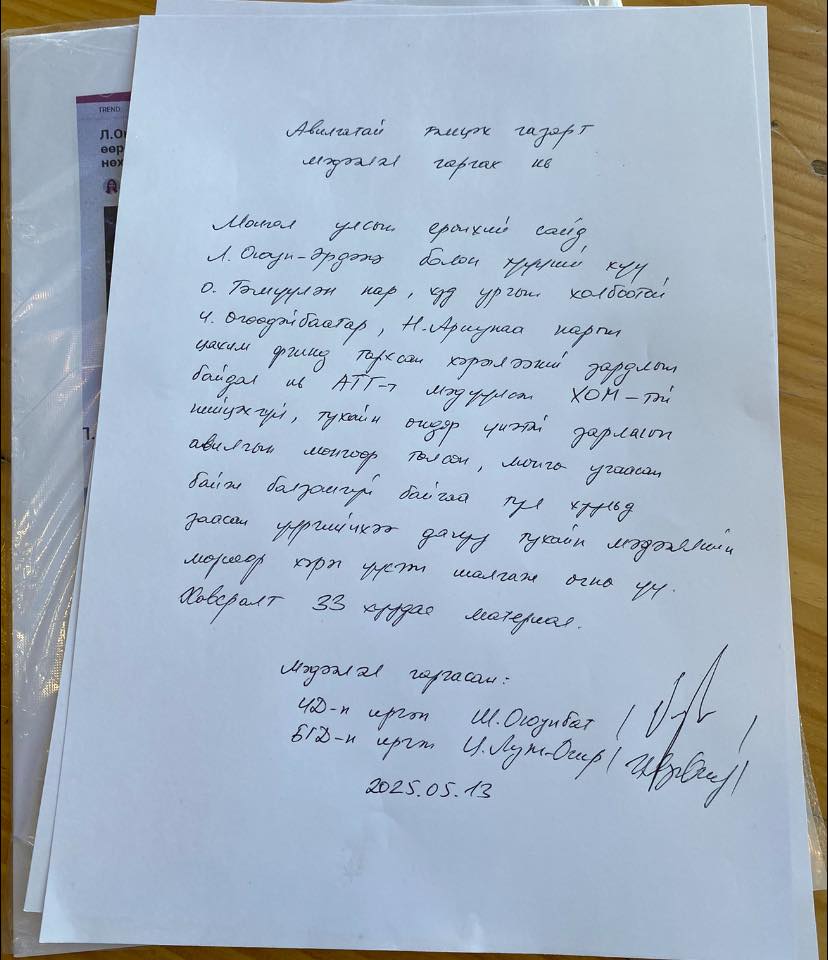 TREND
Л.Ою
өөр
нөх
Авилгатай тэмцэх газарт
мэдээлэл гаргах нь
Монгол улсын ерөнхий сайд
Л. Оюун-Эрдэнэ болон түүний хүү
О. Тэмүүлэн нар, худ ургийн холбоотой
Ч. Өгөөдэйбаатар, Н. Ариунаа нарын
цахим орчинд тархсан хэрэглээний зардлын
байдал нь АТГ-т мэдүүлсэн ХОМ-тэй
нийцэхгүй, тухайн өндөр үнэтэй зарлагын
авилгын мөнгөөр төлсөн, мөнгө угаасан
байж болзошгүй байгаа тул хуульд
заасан үүргийнхээ дагуу тухайн мэдээллийн
мөрөөр хэрэг үүсгэж шалгаж өгнө үү.
Хавсралт 33 хуудас материал.
Мэдээлэл гаргасан:
ЧД-н иргэн Ш. Оюунбат / /
БГД-н иргэн Ц. Луж-Очир / /
2025.05.13